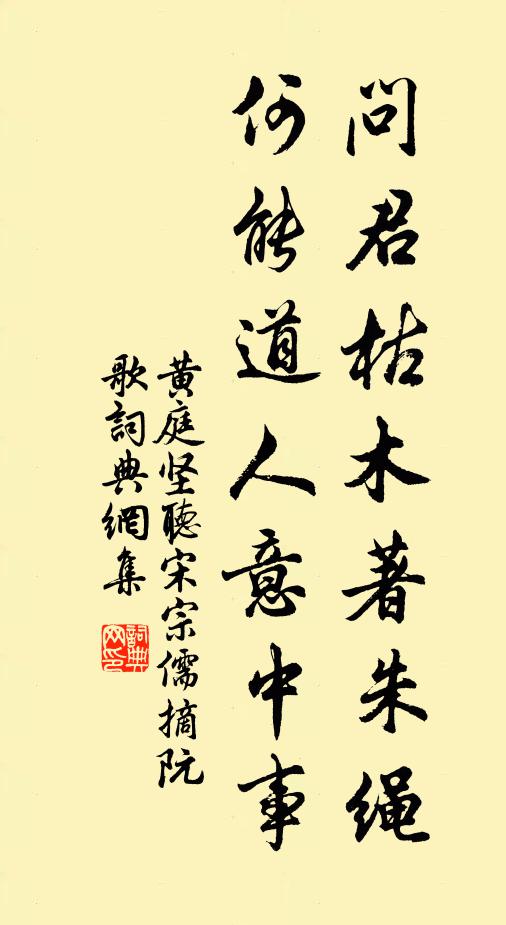 问君枯木著朱绳
何能道人意中事
黄庭坚聽宋宗儒摘阮
歌詞典網集
詞典
网印